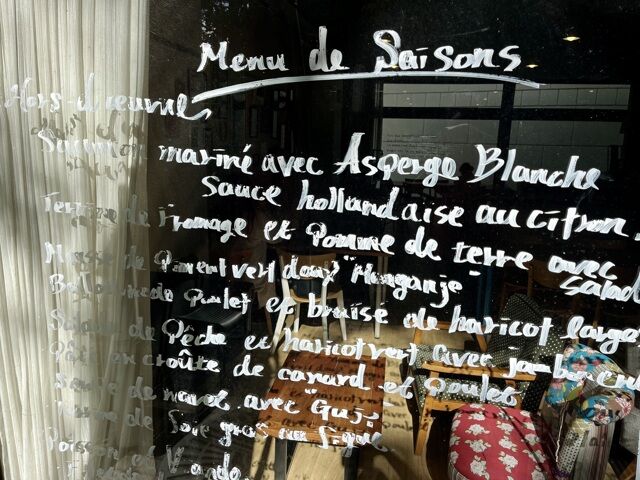 Menu de Saisons
Hors-d'œuvre
Saumon mariné avec Asperge Blanche
Sauce hollandaise au citron.
Terrine de Fromage et Pomme de terre avec
Salad
Mousse de Piment vert doux "Manganje"
Ballotine de Poulet et braise de haricot large
Salade de Pêche et haricot vert avec jambon cru
Pâté en croûte de canard et Poulet
de navet avec "Guji"
Terrine de Foie gras au Figue
Poisson et Viande